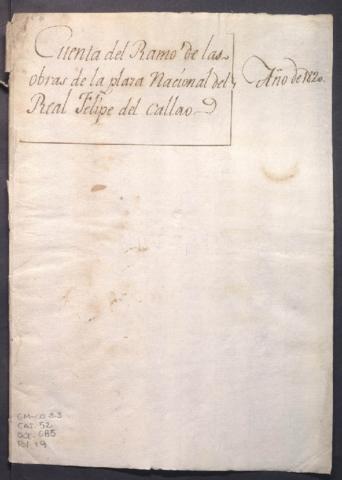 Cuenta del Ramo de las
obras de la plaza Nacional del
Real Felipe del Callao
Año de 1820.
CAJ. 52
DOC. 085
Fol. 19